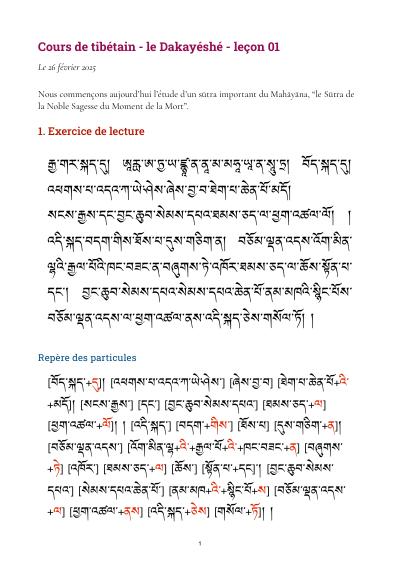 Cours de tibétain - le Dakayéshé - leçon 01
Le 26 février 2025
Nous commençons aujourd’hui l’étude d’un sūtra important du Mahāyāna, “le Sūtra de
la Noble Sagesse du Moment de la Mort”.
1. Exercice de lecture
རྒྱ་གར་སྐད་དུ། ཨཱརྻ་ཨ་ཏྱ་ཡ་ཛྙཱ་ན་ནཱ་མ་མ་ཧཱ་ཡཱ་ན་སཱུ་ཏྲ། བོད་སྐད་དུ།
འཕགས་པ་འདའ་ཀ་ཡེ་ཤེས་ཞེས་བྱ་བ་ཐེག་པ་ཆེན་པོ་མདོ།
སངས་རྒྱས་དང་བྱང་ཆུབ་སེམས་དཔའ་ཐམས་ཅད་ལ་ཕྱག་འཚལ་ལོ། །
འདི་སྐད་བདག་གིས་ཐོས་པ་དུས་གཅིག་ན། བཅོམ་ལྡན་འདས་འོག་མིན་
ལྷའི་རྒྱལ་པོའི་ཁང་བཟང་ན་བཞུགས་ཏེ་འཁོར་ཐམས་ཅད་ལ་ཆོས་སྟོན་པ་
དང་། བྱང་ཆུབ་སེམས་དཔའ་སེམས་དཔའ་ཆེན་པོ་ནམ་མཁའི་སྙིང་པོས་
བཅོམ་ལྡན་འདས་ལ་ཕྱག་འཚལ་ནས་འདི་སྐད་ཅེས་གསོལ་ཏོ། །
Repère des particules
[བོད་སྐད་+དུ]། [འཕགས་པ་འདའ་ཀ་ཡེ་ཤེས་] [ཞེས་བྱ་བ] [ཐེག་པ་ཆེན་པོ+འི་
+མདོ]། [སངས་རྒྱས་] [དང་] [བྱང་ཆུབ་སེམས་དཔའ་] [ཐམས་ཅད་+ལ]
[ཕྱག་འཚལ་+ལོ]། ། [འདི་སྐད་] [བདག་+གིས་] [ཐོས་པ] [དུས་གཅིག་+ན]།
[བཅོམ་ལྡན་འདས་] [འོག་མིན་ལྷ+འི་+རྒྱལ་པོ+འི་+ཁང་བཟང་+ན] [བཞུགས་
+ཏེ] [འཁོར་] [ཐམས་ཅད་+ལ] [ཆོས་] [སྟོན་པ་+དང]་། [བྱང་ཆུབ་སེམས་
དཔའ] [སེམས་དཔའ་ཆེན་པོ་] [ནམ་མཁ+འི་+སྙིང་པོ+ས] [བཅོམ་ལྡན་འདས་
+ལ] [ཕྱག་འཚལ་+ནས] [འདི་སྐད་+ཅེས] [གསོལ་+ཏོ]། །
1